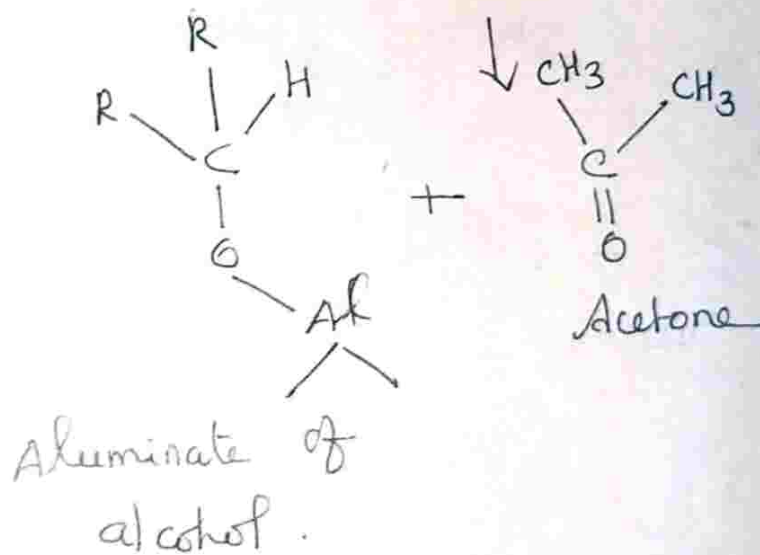 R
R H
C
O
Al
+
CH3 CH3
C
O
Acetone
Aluminate of
alcohol.